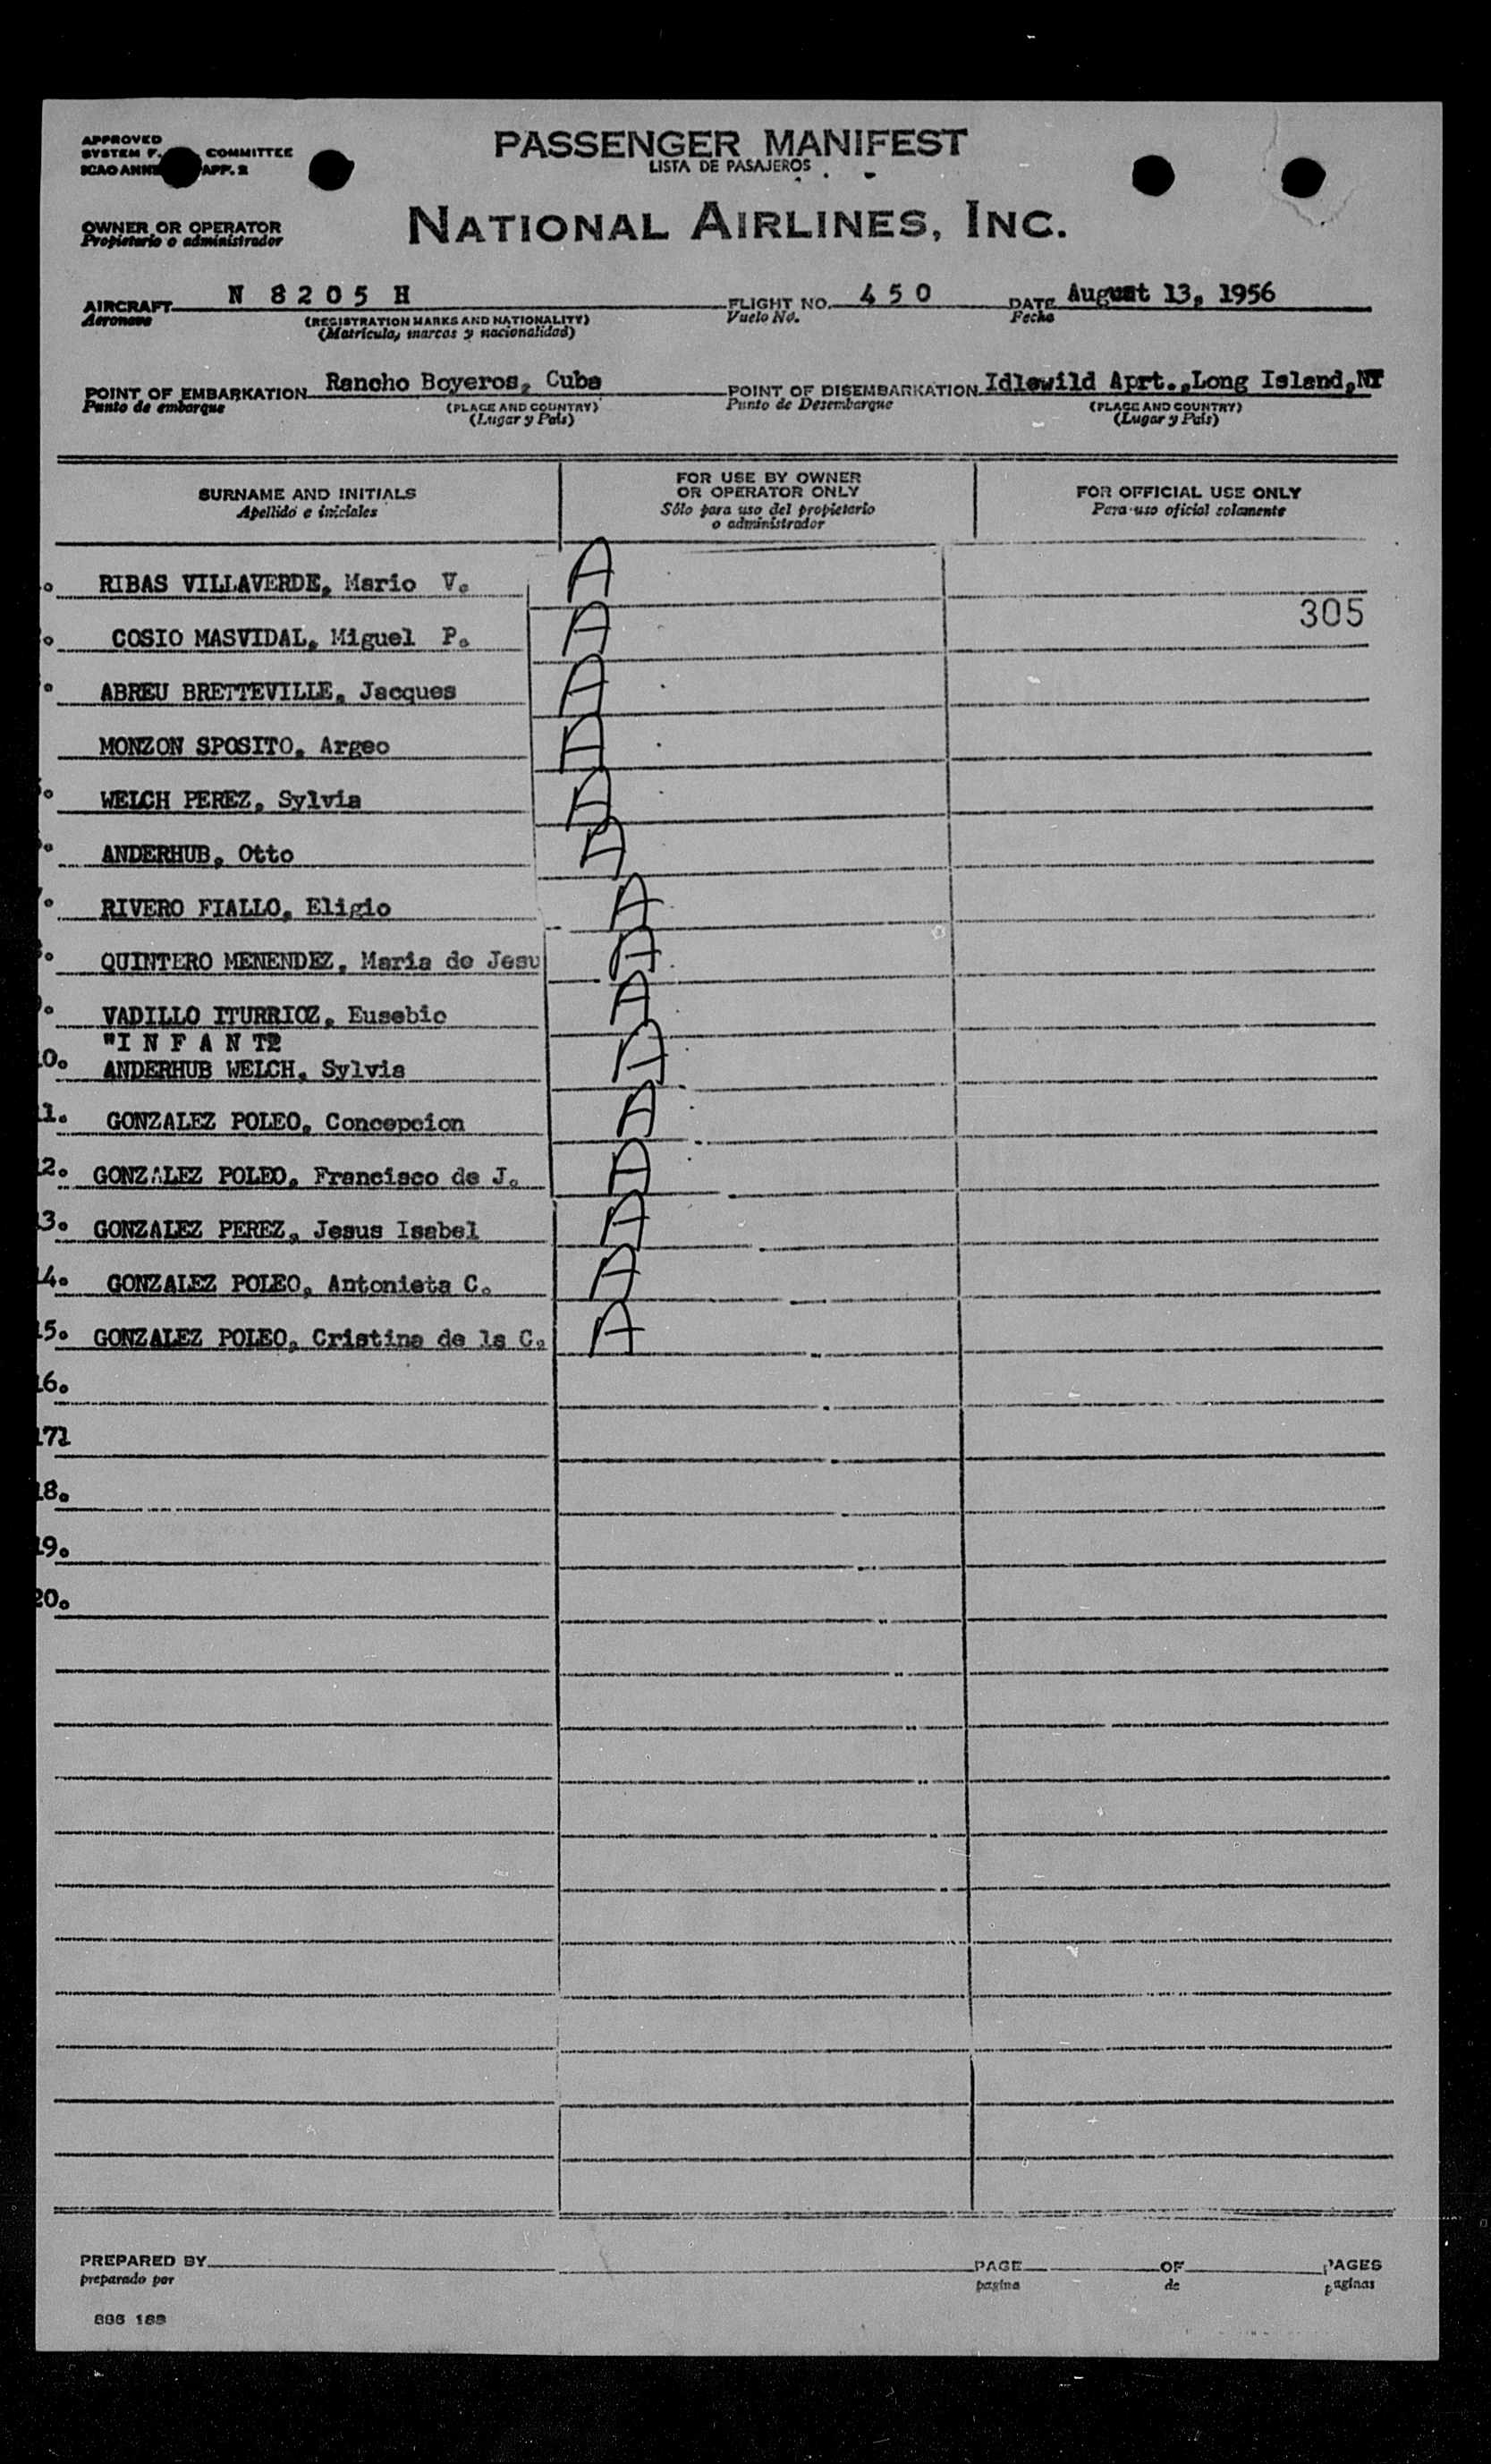 APPROVED
SYSTEM F. COMMITTEE
ICAO ANNE APP. 2
PASSENGER MANIFEST
LISTA DE PASAJEROS
OWNER OR OPERATOR
Propietario o administrador
NATIONAL AIRLINES, INC.
AIRCRAFT N 8 2 0 5 H FLIGHT NO. 4 5 0 DATE August 13, 1956
Aeronave (REGISTRATION MARKS AND NATIONALITY) Vuelo No. Fecha
(Matrícula, marcas y nacionalidad)
POINT OF EMBARKATION Rancho Boyeros, Cuba POINT OF DISEMBARKATION Idlewild Aprt.,Long Island,NY
Punto de embarque (PLACE AND COUNTRY) Punto de Desembarque (PLACE AND COUNTRY)
(Lugar y País) (Lugar y País)
SURNAME AND INITIALS
Apellido e iniciales
FOR USE BY OWNER
OR OPERATOR ONLY
Sólo para uso del propietario
o administrador
FOR OFFICIAL USE ONLY
Para uso oficial solamente
. RIBAS VILLAVERDE, Mario V. A
305
. COSIO MASVIDAL, Miguel P. A
. ABREU BRETTEVILLE, Jacques A
MONZON SPOSITO, Argeo A
. WELCH PEREZ, Sylvia A
. ANDERHUB, Otto A
. RIVERO FIALLO, Eligio A
. QUINTERO MENENDEZ, Maria de Jesu A
. VADILLO ITURRIOZ, Eusebio A
"I N F A N TE
10. ANDERHUB WELCH, Sylvia A
11. GONZALEZ POLEO, Concepcion A
12. GONZALEZ POLEO, Francisco de J. A
13. GONZALEZ PEREZ, Jesus Isabel A
14. GONZALEZ POLEO, Antonieta C. A
15. GONZALEZ POLEO, Cristina de la C. A
16.
171
18.
19.
20.
PREPARED BY PAGE OF PAGES
preparado por pagina de paginas